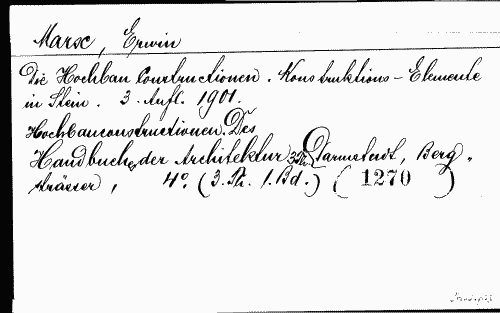 Marx, Erwin
Die Hochbau Constructionen. Konstruktions-Elemente
in Stein. 3. Aufl. 1901.
Hochbauconstructionen. Des
Handbuches der Architektur 3. Th. Darmstadt, Berg-
strässer, 4°. (3. Th. 1. Bd.) (1270)